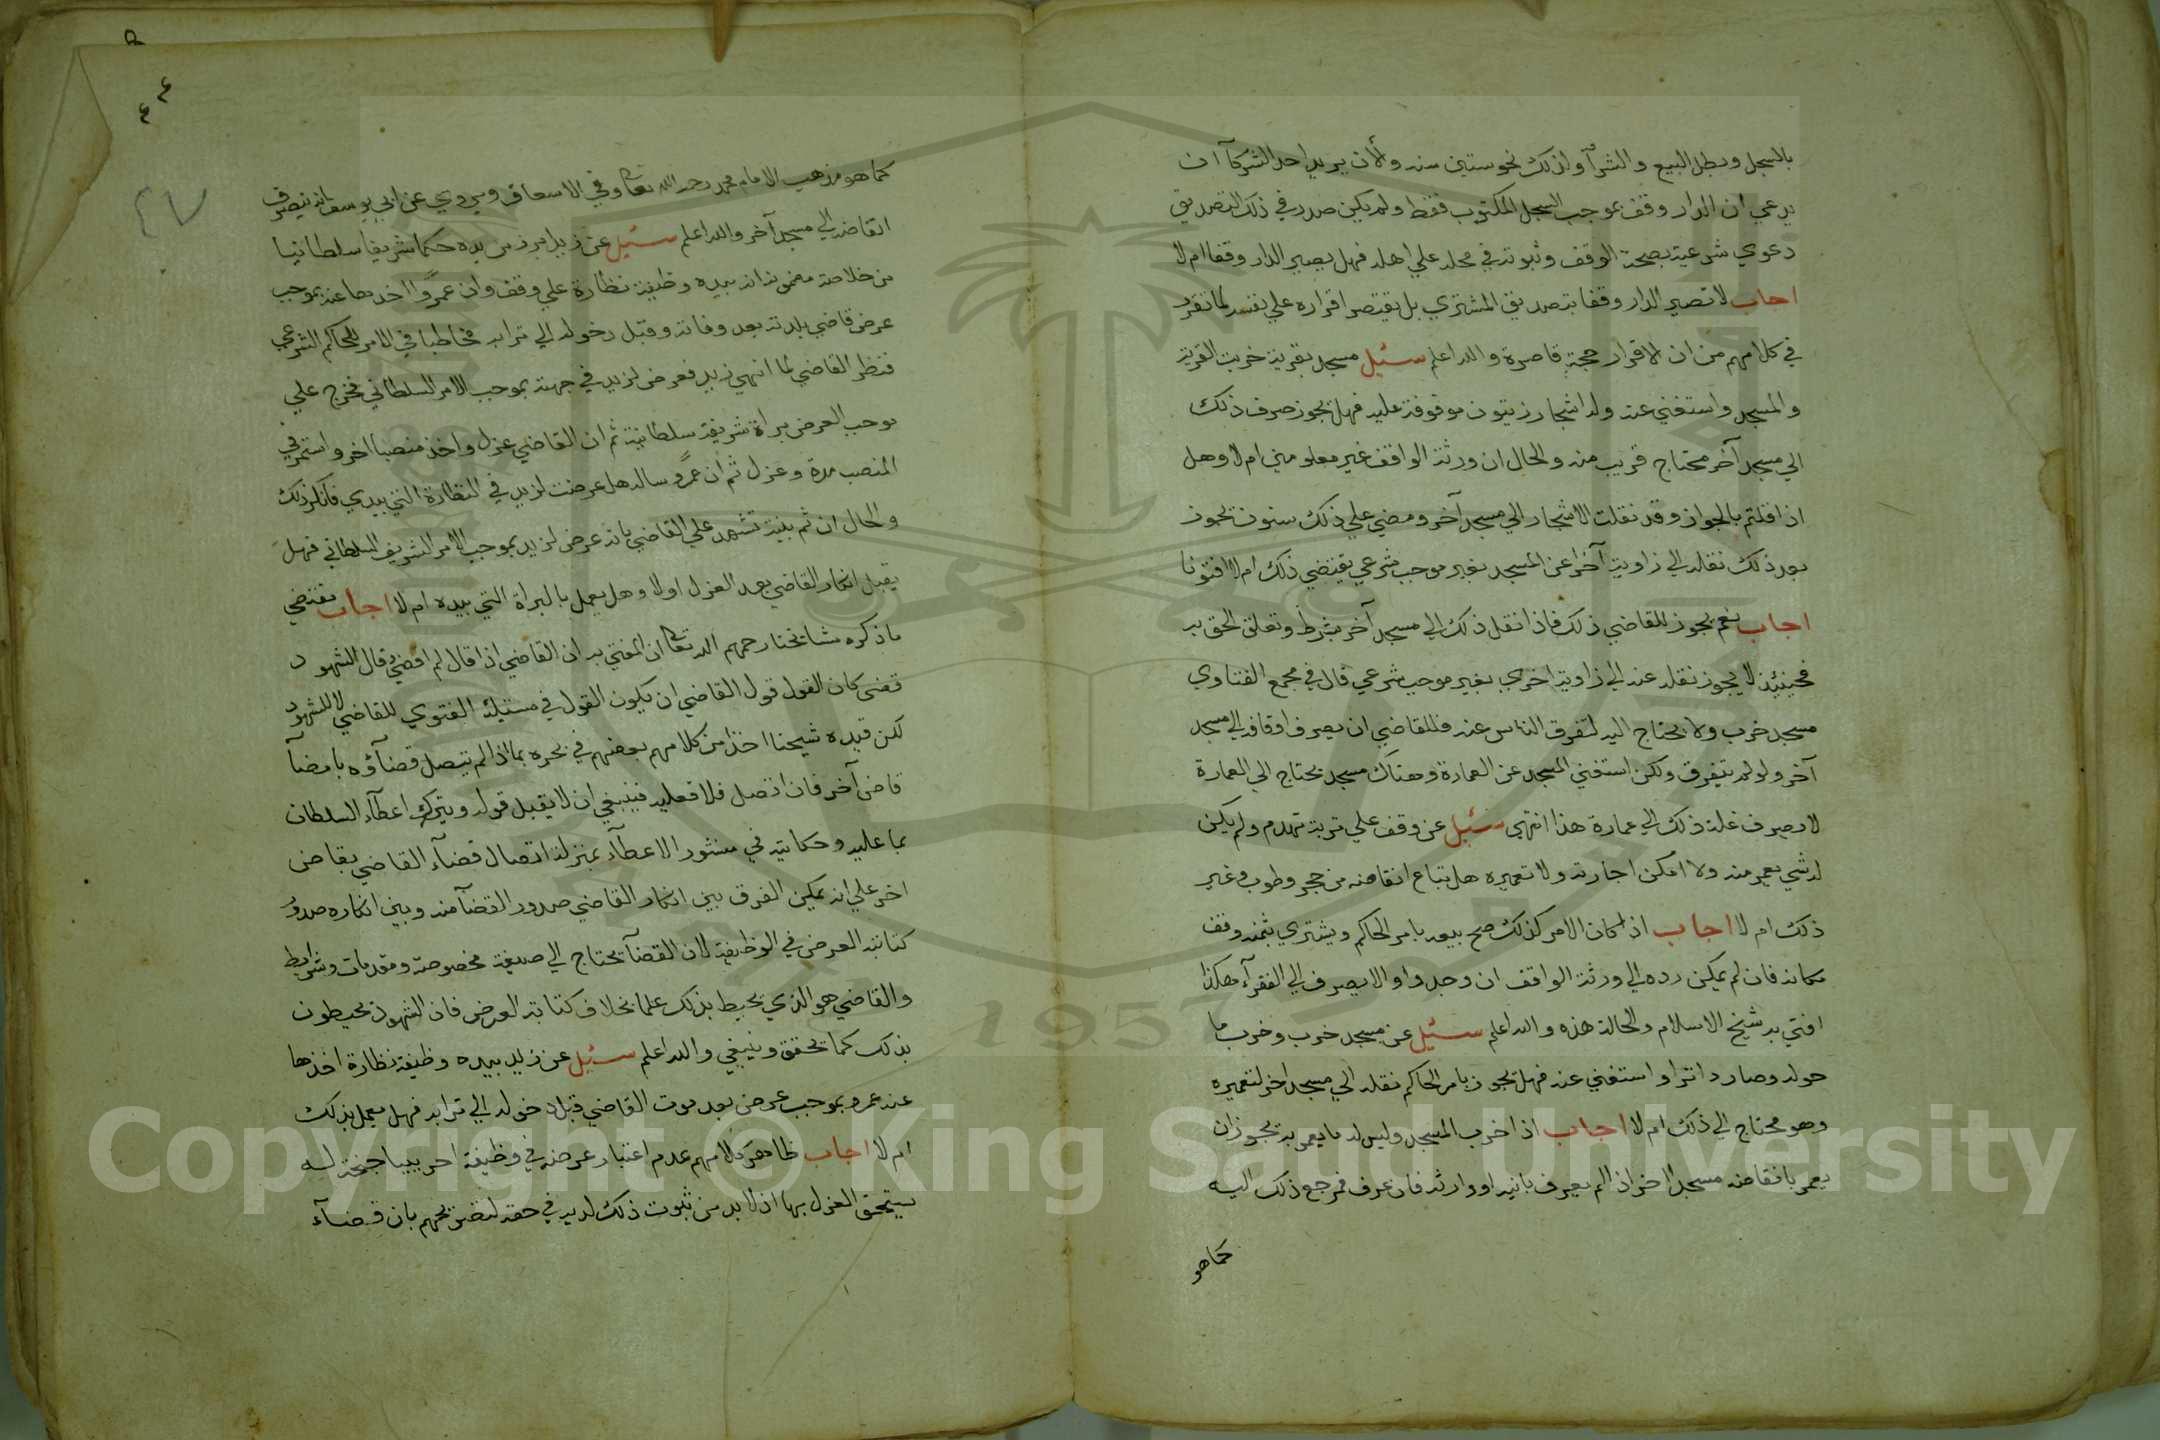 بالسجل وبطل البيع والشرآ ولذلك نحو ستين سنه والان يريد احد الشركآ ان
يدعي ان الدار وقف بموجب السجل المكتوب فقط ولم يكن صدر في ذلك التصديق
دعوي شرعية بصحة الوقف وثبوته في محله علي اهله فهل يصير الدار وقفا ام لا
اجاب لا تصير الدار وقفا بتصديق المشتري بل يقتصر اقراره علي نفسه لما تقرر
في كلامهم من ان الاقرار حجة قاصرة والله اعلم سئيل مسجد بقرية خربت القرية
والمسجد واستغني عنه وله اشجار زيتون موقوفة عليه فهل يجوز صرف ذلك
الي مسجد آخر محتاج قريب منه والحال ان ورثة الواقف غير معلومين ام لا وهل
اذا قلتم بالجواز وقد نقلت الاشجار الي مسجد آخر ومضي علي ذلك سنون تجوز
بعد ذلك نقله الي زاوية آخرا عن المسجد بغير موجب شرعي يقتضي ذلك ام لا افتونا
اجاب نعم يجوز للقاضي ذلك فاذا نقل ذلك الي مسجد آخر بشرطه وتعلق الحق به
فحينئيذ لا يجوز نقله عنه الي زاوية اخري بغير موجب شرعي قال في مجمع الفتاوي
مسجد خرب ولا يحتاج اليه لتفرق الناس عنه فللقاضي ان يصرف اوقافه الي مسجد
آخر ولو لم يتفرق ولكن استغني المسجد عن العمارة وهناك مسجد يحتاج الي العمارة
لا يصرف غلة ذلك الي عمارة هذا انتهي سئيل عن وقف علي تربة تهدم ولم يكن
له شي يعمر منه ولا امكن اجارته ولا تعميره هل يتباع انقاضه من حجر وطوب وغير
ذلك ام لا اجاب اذا كان الامر كذلك صح بيعه بامر الحاكم ويشتري بثمنه وقف
مكانه فان لم يمكن رده الي ورثة الواقف ان وجدوا والا يصرف الي الفقرآ هكذا
افتي به شيخ الاسلام والحالة هذه والله اعلم سئيل عن مسجد خرب وخرب ما
حوله وصار داثرا واستغني عنه فهل يجوز بامر الحاكم نقله الي مسجد اخر لتعميره
وهو محتاج الي ذلك ام لا اجاب اذا خرب المسجد وليس له ما يعمر به يجوز ان
يعمر بانقاضه مسجدا اخر اذا لم يعرف بانيه او وارثه فان عرف فمرجع ذلك اليه
كما هو
كما هو مذهب الامام محمد رحمه الله تعا وفي الاسعاف ويروي عن ابي يوسف انه تصرف
انقاضه الي مسجد آخر والله اعلم سئيل عن زيد ابرز من يده حكما شريفا سلطانيا
من خلاصة مضمونه انه بيده وظيفة نظارة علي وقف وان عمروا اخذها عنه بموجب
عرض قاضي بلدته بعد وفاته وقبل دخوله الي ترابه مخاطبا في الامر للحاكم الشرعي
فنظر القاضي لما انهي زيد فعرض لزيد في جهته بموجب الامر السلطاني فخرج علي
موجب العرض براة شريفة سلطانية ثم ان القاضي عزل واخذ منصبا اخر واستمر في
المنصب مدة وعزل ثم ان عمرو ساله هل عرضت لزيد في النظارة التي بيدي فانكر ذلك
والحال ان ثم بينة تشهد علي القاضي بانه عرض لزيد بموجب الامر الشريف السلطاني فهل
يقبل انكار القاضي بعد العزل اولا وهل يعمل بالبراة التي بيده ام لا اجاب مقتضي
ما ذكره مشائخنا رحمهم الله تعا ان المفتي به ان القاضي اذا قال لم اقضي وقال الشهود
قضي كان القول قول القاضي ان يكون القول في مسئيلة الفتوي للقاضي لا للشهود
لكن قيده شيخنا اخذا من كلامهم بعضهم في بحره بما اذا لم يتصل قضآؤه بامضآ
قاض آخر فان اتصل فلا فعليه فينبغي ان لا يقبل قوله ويترك اعطآء السلطان
بما عليه وحكايته في منشور الاعطآ بمنزلة اتصال قضآء القاضي بقاض
اخر علي انه يمكن الفرق بين انكار القاضي صدور القضآ منه وبين انكاره صدور
كتابته العرض في الوظيفة لان القضآ يحتاج الي صيغة مخصوصة ومقدمات وشرايط
والقاضي هو الذي يحيط بذلك علما بخلاف كتابة العرض فان الشهود يحيطون
بذلك كما تحقق وينبغي والله اعلم سئيل عن زيد بيده وظيفة نظارة اخذها
عنه عمرو بموجب عرض بعد موت القاضي قبل دخوله الي ترابه فهل يعمل بذلك
ام لا اجاب ظاهر كلامهم عدم اعتبار عرضه في وظيفة احد بيبا جنحة له
يستحق العزل بها اذ لا بد من ثبوت ذلك لديه في حقه لتصريحهم بان قضآء